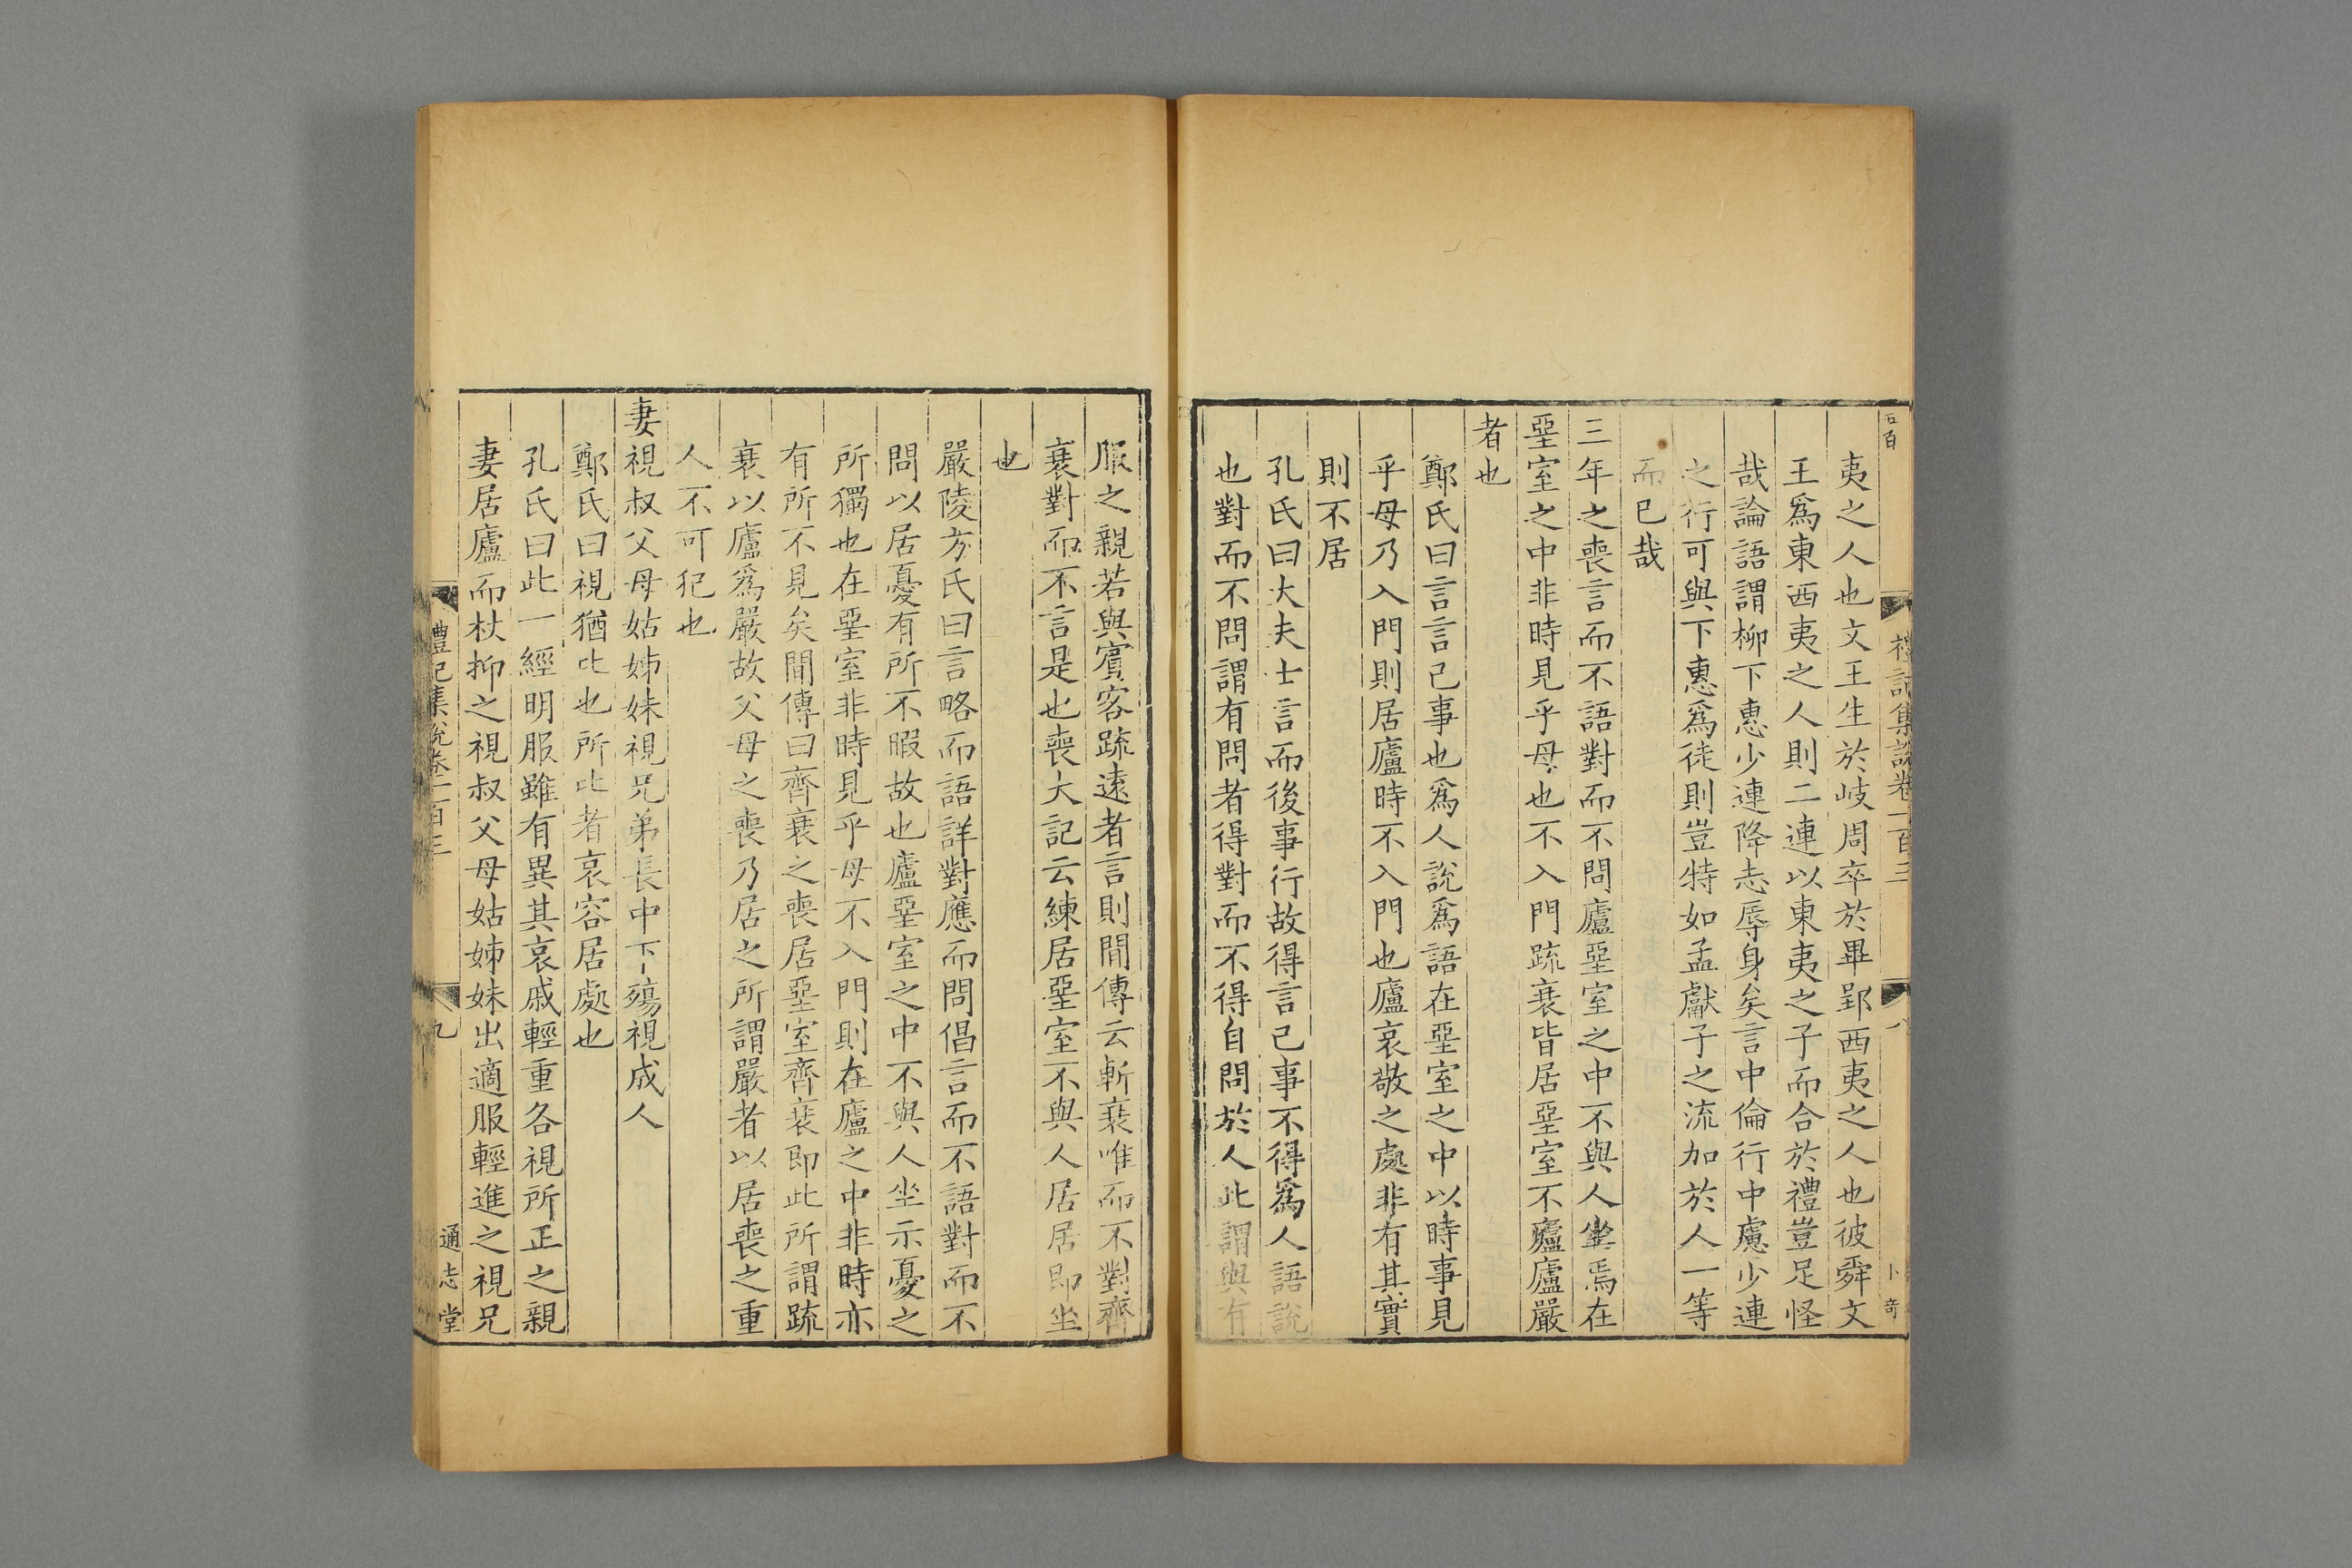 禮記集說卷一百三
八
夷之人也文王生於岐周卒於畢郢西夷之人也彼舜文
王爲東西夷之人則二連以東夷之子而合於禮豈足怪
哉論語謂柳下惠少連降志辱身矣言中倫行中慮少連
之行可與下惠爲徒則豈特如孟獻子之流加於人一等
而已哉
三年之喪言而不語對而不問廬堊室之中不與人坐焉在
堊室之中非時見乎母也不入門疏衰皆居堊室不廬廬嚴
者也
鄭氏曰言言己事也爲人說爲語在堊室之中以時事見
乎母乃入門則居廬時不入門也廬哀敬之處非有其實
則不居
孔氏曰大夫士言而後事行故得言己事不得爲人語說
也對而不問謂有問者得對而不得自問於人此謂與有
服之親若與賓客疏遠者言則間傳云斬衰唯而不對齊
衰對而不言是也喪大記云練居堊室不與人居居即坐
也
嚴陵方氏曰言略而語詳對應而問倡言而不語對而不
問以居憂有所不暇故也廬堊室之中不與人坐示憂之
所獨也在堊室非時見乎母不入門則在廬之中非時亦
有所不見矣間傳曰齊衰之喪居堊室齊衰即此所謂疏
衰以廬爲嚴故父母之喪乃居之所謂嚴者以居喪之重
人不可犯也
妻視叔父母姑姊妹視兄弟長中下殤視成人
鄭氏曰視猶比也所比者哀容居處也
孔氏曰此一經明服雖有異其哀戚輕重各視所正之親
妻居廬而杖抑之視叔父母姑姊妹出適服輕進之視兄
禮記集說卷一百三
九
通志堂